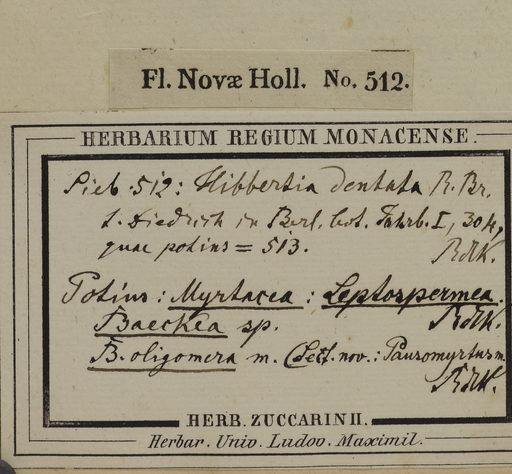 Fl. Novæ Holl. No. 512.
HERBARIUM REGIUM MONACENSE.
Sieb. 512: Hibbertia dentata R. Br.
t. Diedrich in Berl. bot. Jahrb. I, 304,
quae potius = 513.
Potius: Myrtacea: Leptospermea.
Baeckea sp.
B. oligomera m. (Sect. nov.: Pausomyrtus m.
HERB. ZUCCARINII.
Herbar. Univ. Ludov. Maximil.